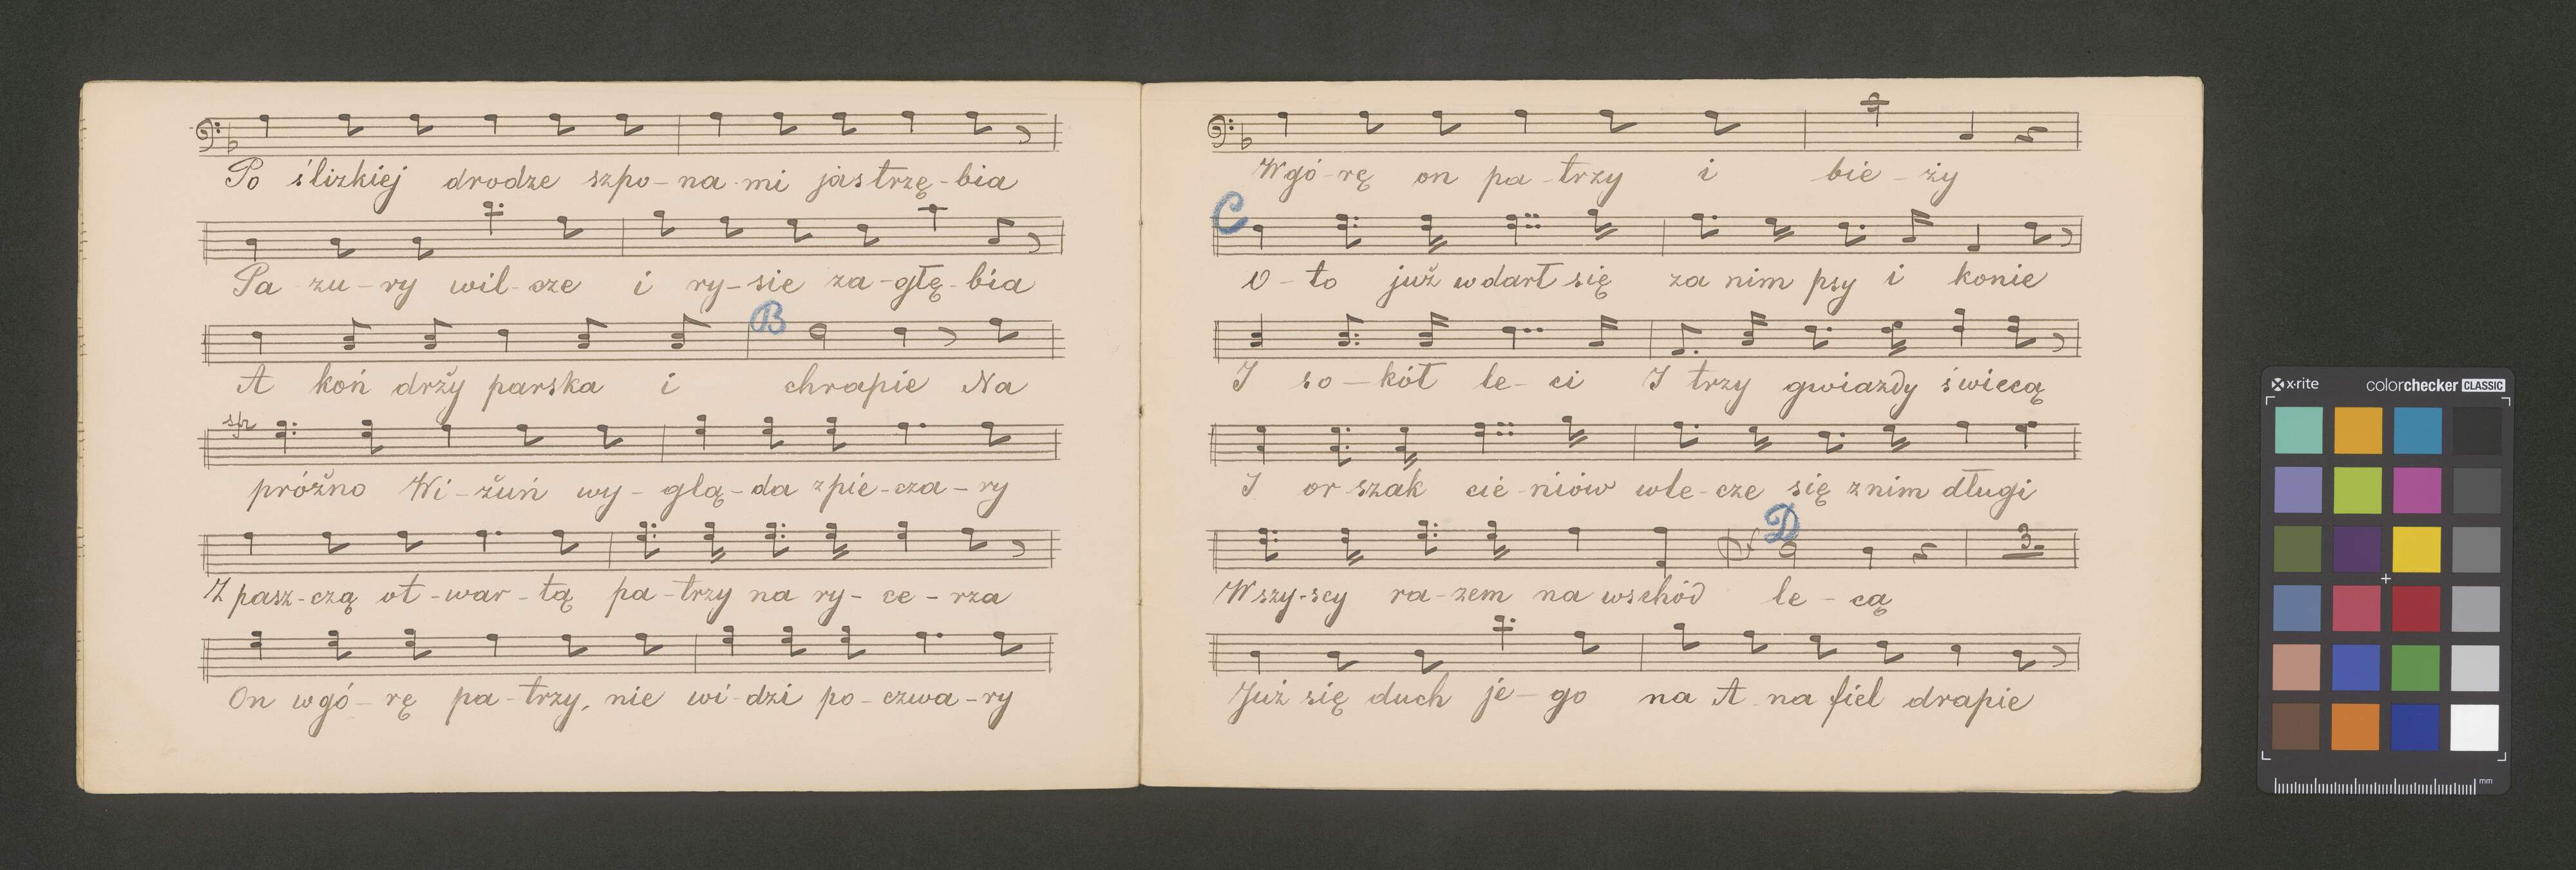 Po ślizkiej drodze szpo-na-mi jastrzę-bia
Pa-zu-ry wil-cze i ry-sie za-głę-bia
B
A koń drży parska i chrapie Na
próżno Wi-żuń wy-glą-da zpie-cza-ry
Z pasz-czą ot-war-tą pa-trzy na ry-ce-rza
On wgó-rę pa-trzy, nie wi-dzi po-czwa-ry
Wgó-rę on pa-trzy i bie-ży
C
O-to już wdarł się za nim psy i konie
I so-kół le-ci I trzy gwiazdy świecą
I or-szak cie-niów wle-cze się znim długi
D
3
Wszy-scy ra-zem na wschód le-cą
Już się duch je-go na A-na fiel drapie
x-rite colorchecker CLASSIC
mm